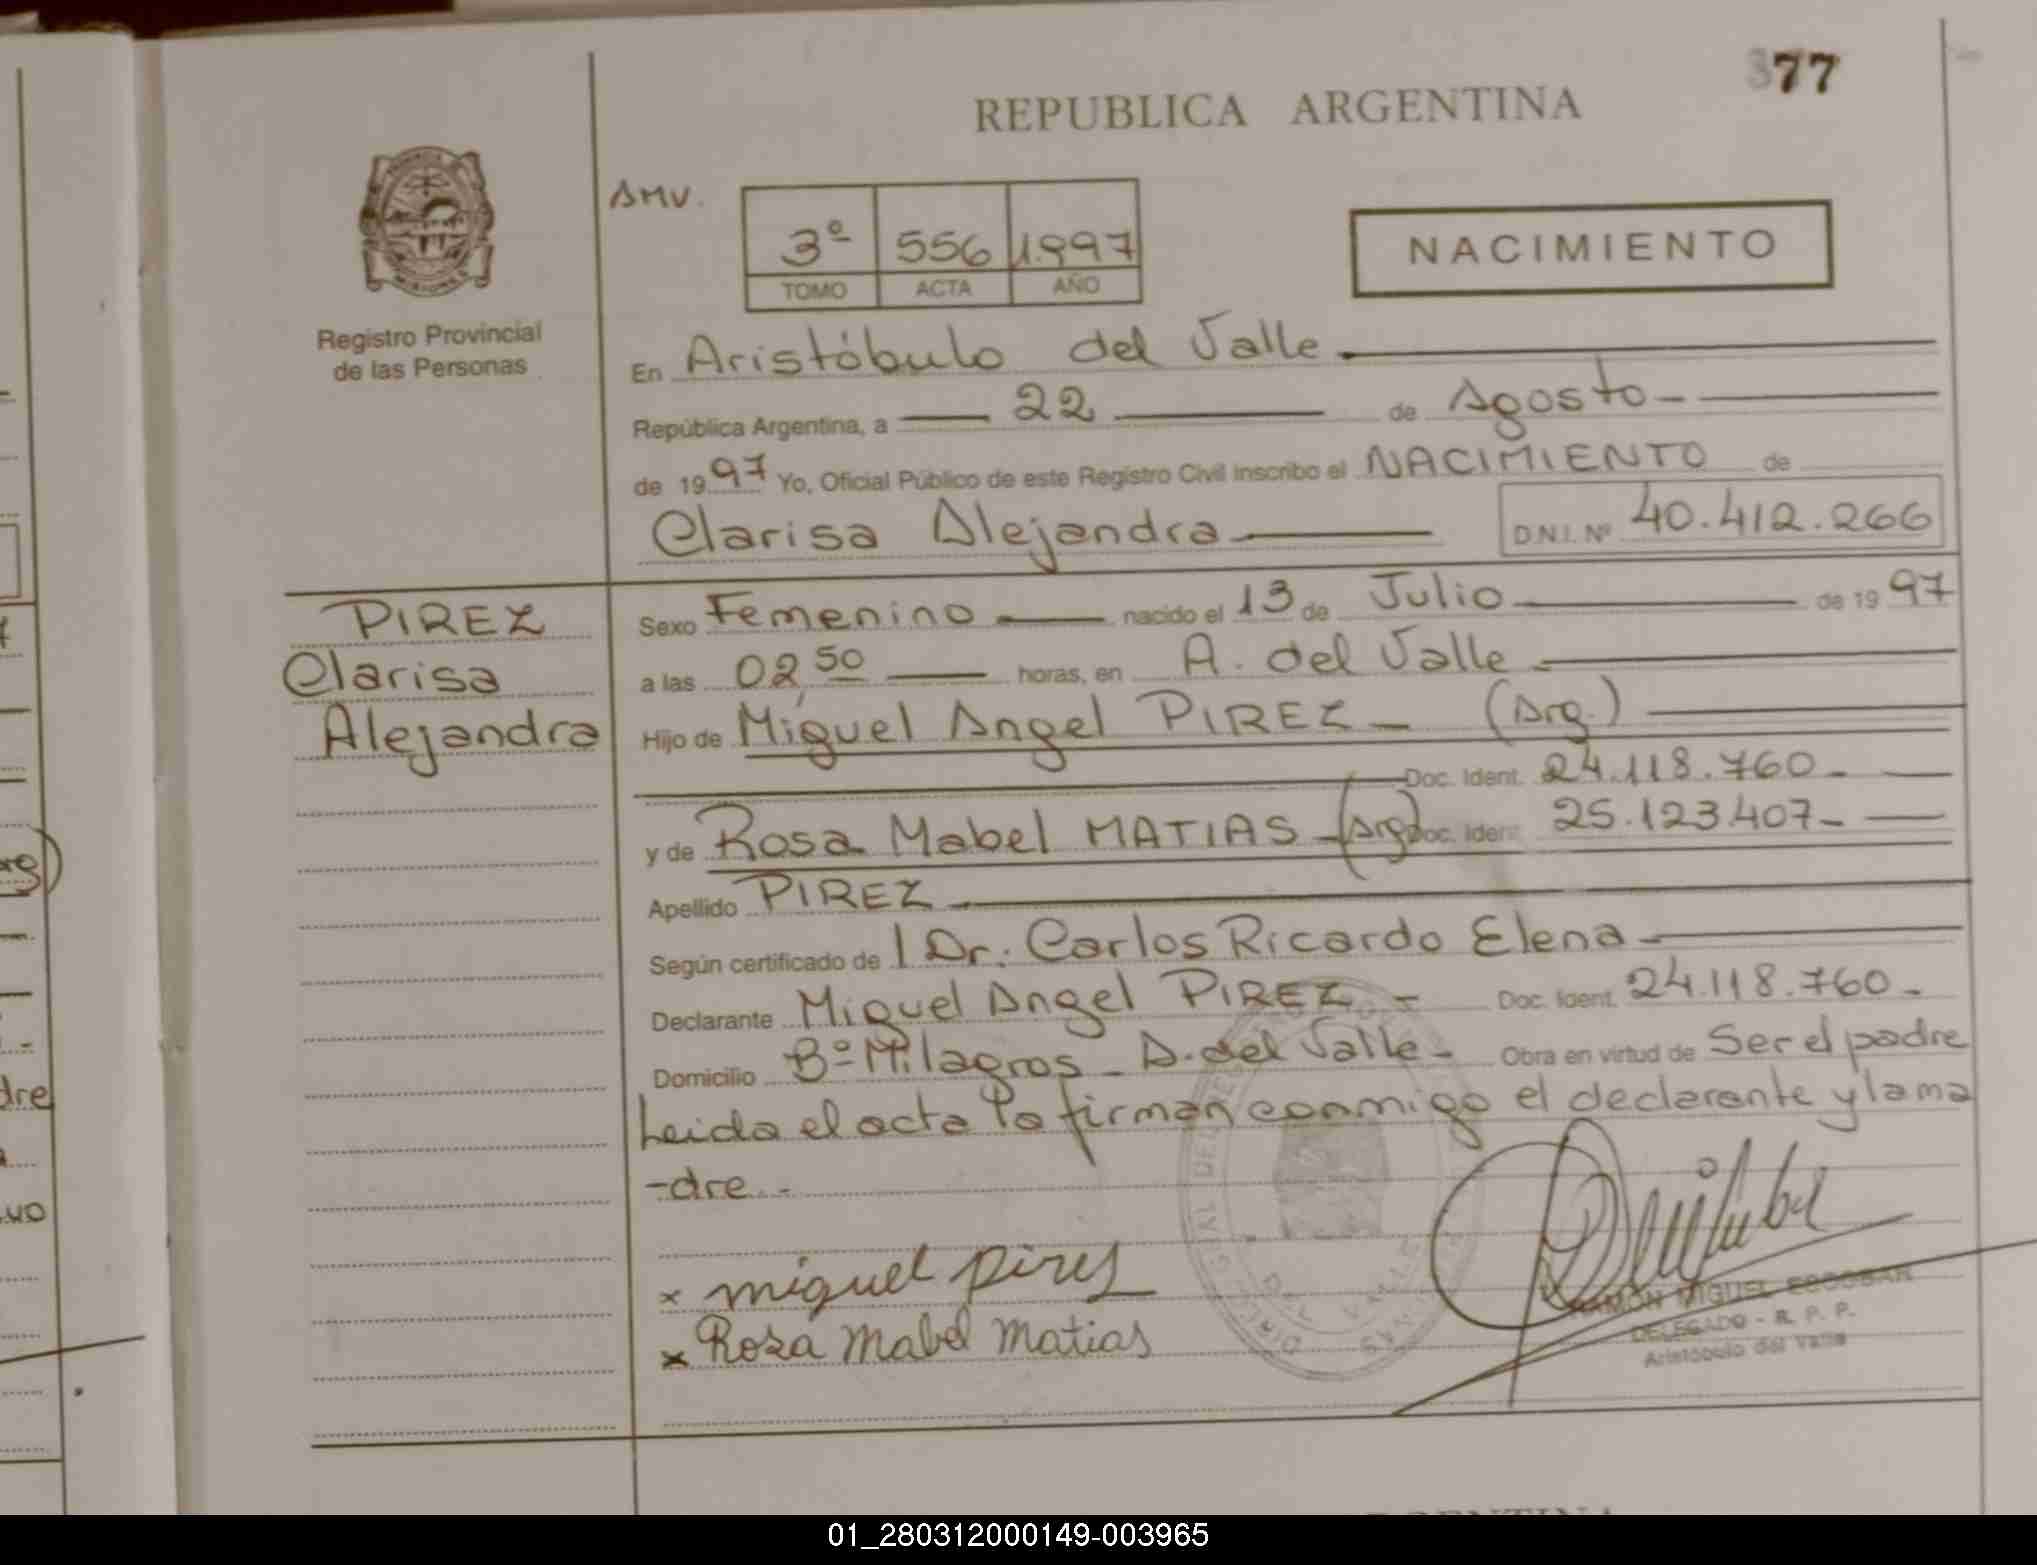 377
REPUBLICA ARGENTINA
AMV.
3º 556 1.997
TOMO ACTA AÑO
NACIMIENTO
MISIONES
Registro Provincial
de las Personas
En Aristóbulo del Valle
República Argentina, a 22 de Agosto
de 1997 Yo, Oficial Público de este Registro Civil inscribo el NACIMIENTO de
Clarisa Alejandra D.N.I. Nº 40.412.266
PIREZ
Clarisa
Alejandra
Sexo Femenino nacido el 13 de Julio de 1997
a las 02,50 horas, en A. del Valle
Hijo de Miguel Angel PIREZ (Arg.)
Doc. Ident. 24.118.760
y de Rosa Mabel MATIAS (Arg) Doc. Ident. 25.123.407
Apellido PIREZ
Según certificado de l Dr. Carlos Ricardo Elena
Declarante Miguel Angel PIREZ Doc. Ident. 24.118.760
Domicilio Bº Milagros - A. del Valle Obra en virtud de Ser el padre
Leida el acta la firman conmigo el declarante y la ma
-dre.-
x miguel pirez
x Rosa Mabel Matias
RAMÓN MIGUEL ESCOBAR
DELEGADO - R. P. P.
Aristóbulo del Valle
01_280312000149-003965